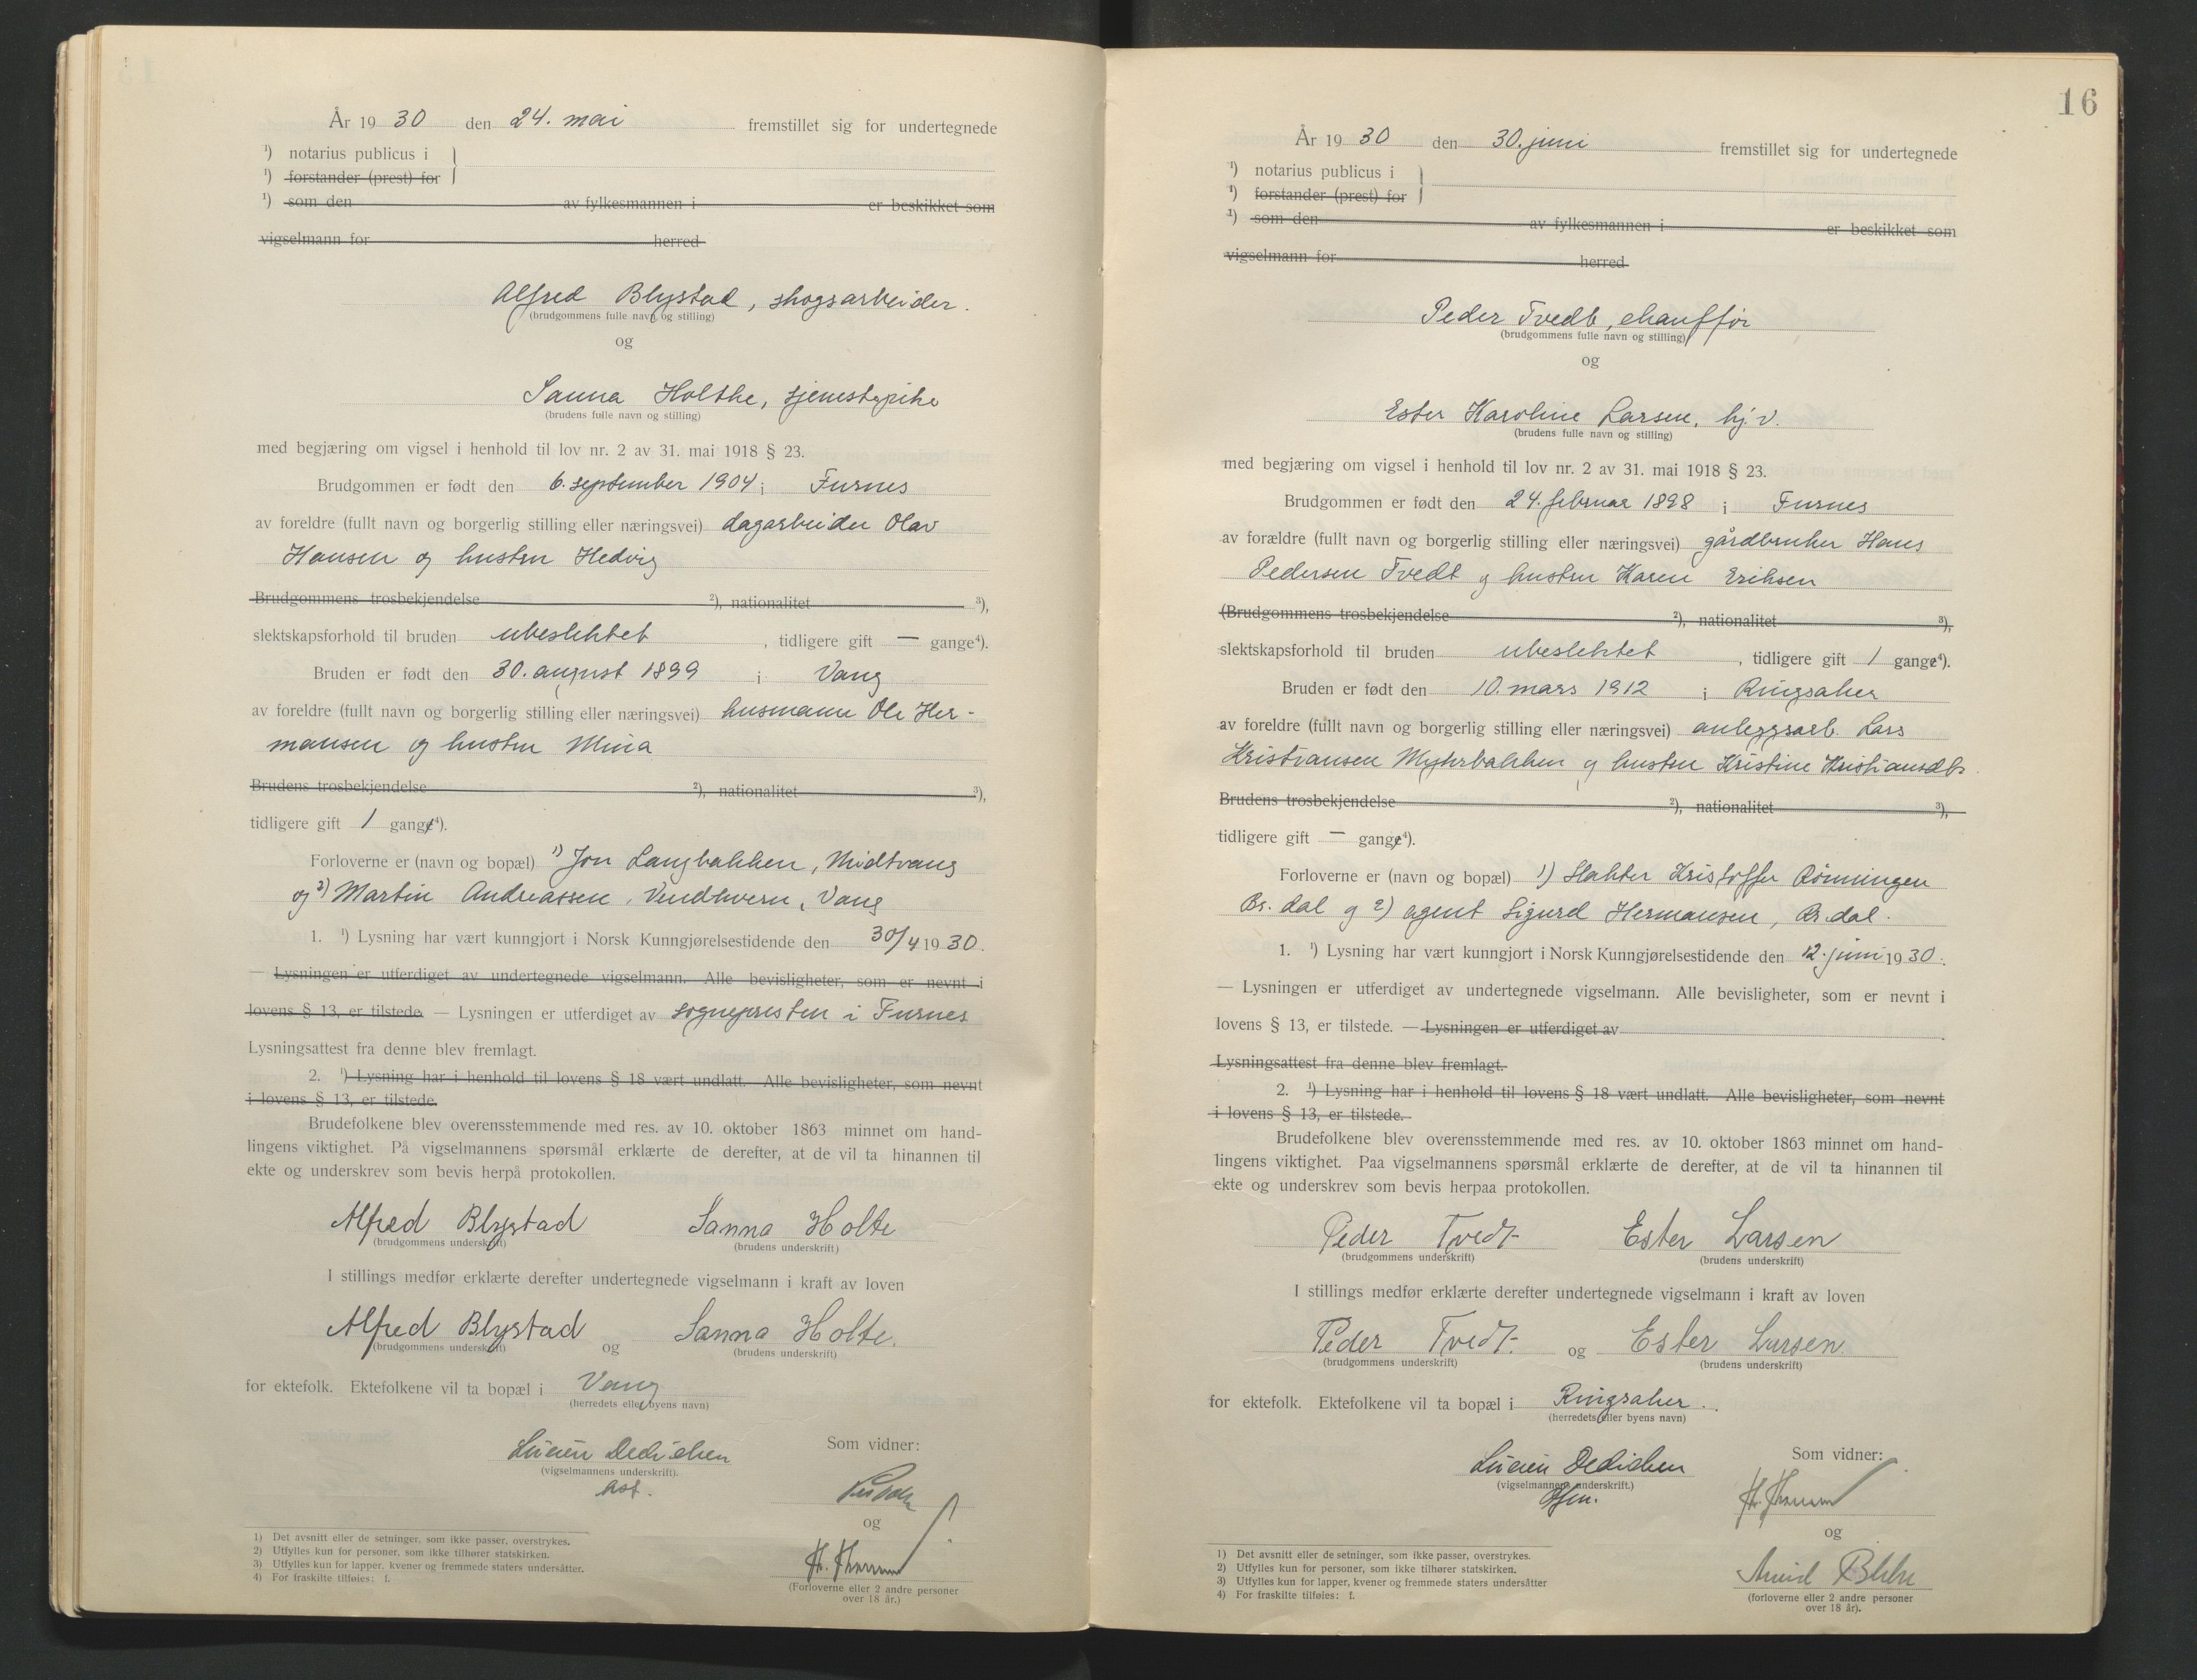 År 1930 den 24. mai fremstillet sig for undertegnede
1) notarius publicus i
1) forstander (prest) for
1) som den av fylkesmannen i er beskikket som
vigselmann for herred
Alfred Blystad, skogsarbeider.
(brudgommens fulle navn og stilling)
og
Sanna Holthe, tjenestepike
(brudens fulle navn og stilling)
med begjæring om vigsel i henhold til lov nr. 2 av 31. mai 1918 § 23.
Brudgommen er født den 6. september 1904 i Furnes
av foreldre (fullt navn og borgerlig stilling eller næringsvei) dagarbeider Olav
Hansen og hustru Hedvig
Brudgommens trosbekjendelse 2), nationalitet 3),
slektskapsforhold til bruden ubeslektet, tidligere gift — gange4).
Bruden er født den 30. august 1899 i Vang
av foreldre (fullt navn og borgerlig stilling eller næringsvei) husmann Ole Her-
mansen og hustru Mina
Brudens trosbekjendelse 2), nationalitet 3),
tidligere gift 1 gange4).
Forloverne er (navn og bopæl) 1) Jon Langbakken, Midtvang
og 2) Martin Andreassen, Vendkvern, Vang
1. 1) Lysning har vært kunngjort i Norsk Kunngjørelsestidende den 30/4 1930.
— Lysningen er utferdiget av undertegnede vigselmann. Alle bevisligheter, som er nevnt i
lovens § 13, er tilstede. — Lysningen er utferdiget av sognepresten i Furnes
Lysningsattest fra denne blev fremlagt.
2. 1) Lysning har i henhold til lovens § 18 vært undlatt. Alle bevisligheter, som nevnt
i lovens § 13, er tilstede.
Brudefolkene blev overensstemmende med res. av 10. oktober 1863 minnet om hand-
lingens viktighet. På vigselmannens spørsmål erklærte de derefter, at de vil ta hinannen til
ekte og underskrev som bevis herpå protokollen.
Alfred Blystad Sanna Holte
(brudgommens underskrift) (brudens underskrift)
I stillings medfør erklærte derefter undertegnede vigselmann i kraft av loven
Alfred Blystad og Sanna Holte.
(brudgommens underskrift) (brudens underskrift)
for ektefolk. Ektefolkene vil ta bopæl i Vang
(herredets eller byens navn)
Lucien Dedichen Som vidner:
(vigselmannens underskrift).
kst.
og
(Forloverne eller 2 andre personer
over 18 år.)
1) Det avsnitt eller de setninger, som ikke passer, overstrykes.
2) Utfylles kun for personer, som ikke tilhører statskirken.
3) Utfylles kun for lapper, kvener og fremmede staters undersåtter.
4) For fraskilte tilføies: f.
16
År 1930 den 30. juni fremstillet sig for undertegnede
1) notarius publicus i
1) forstander (prest) for
1) som den av fylkesmannen i er beskikket som
vigselmann for herred
Peder Tvedt, chauffør
(brudgommens fulle navn og stilling)
og
Ester Karoline Larsen, hj.v.
(brudens fulle navn og stilling)
med begjæring om vigsel i henhold til lov nr. 2 av 31. mai 1918 § 23.
Brudgommen er født den 24. februar 1898 i Furnes
av forældre (fullt navn og borgerlig stilling eller næringsvei) gårdbruker Hans
Pedersen Tvedt og hustru Karen Eriksen
(Brudgommens trosbekjendelse 2), nationalitet 3),
slektskapsforhold til bruden ubeslektet, tidligere gift 1 gange4).
Bruden er født den 10. mars 1912 i Ringsaker
av foreldre (fullt navn og borgerlig stilling eller næringsvei) anleggsarb. Lars
Kristiansen Myhrbakken og hustru Kristine Kristiansdtr.
Brudens trosbekjendelse 2), nationalitet 3),
tidligere gift — gange4).
Forloverne er (navn og bopæl) 1) Slakter Kristoffer Rønningen
Br.dal og 2) agent Sigurd Hermansen, Br.dal.
1. 1) Lysning har vært kunngjort i Norsk Kunngjørelsestidende den 12. juni 1930.
— Lysningen er utferdiget av undertegnede vigselmann. Alle bevisligheter, som er nevnt i
lovens § 13, er tilstede. — Lysningen er utferdiget av
Lysningsattest fra denne blev fremlagt.
2. 1) Lysning har i henhold til lovens § 18 vært undlatt. Alle bevisligheter, som nevnt
i lovens § 13, er tilstede.
Brudefolkene blev overensstemmende med res. av 10. oktober 1863 minnet om hand-
lingens viktighet. Paa vigselmannens spørsmål erklærte de derefter, at de vil ta hinannen til
ekte og underskrev som bevis herpaa protokollen.
Peder Tvedt Ester Larsen
(brudgommens underskrift) (brudens underskrift)
I stillings medfør erklærte derefter undertegnede vigselmann i kraft av loven
Peder Tvedt. og Ester Larsen
(brudgommens underskrift) (brudens underskrift)
for ektefolk. Ektefolkene vil ta bopæl i Ringsaker.
(herredets eller byens navn)
Lucien Dedichen Som vidner:
(vigselmannens underskrift.)
og
(forloverne eller 2 andre personer
over 18 år).
1) Det avsnitt eller de setninger, som ikke passer, overstrykes.
2) Utfylles kun for personer, som ikke tilhører statskirken.
3) Utfylles kun for lapper, kvener og fremmede staters undersåtter
4) For fraskilte tilføies: f.